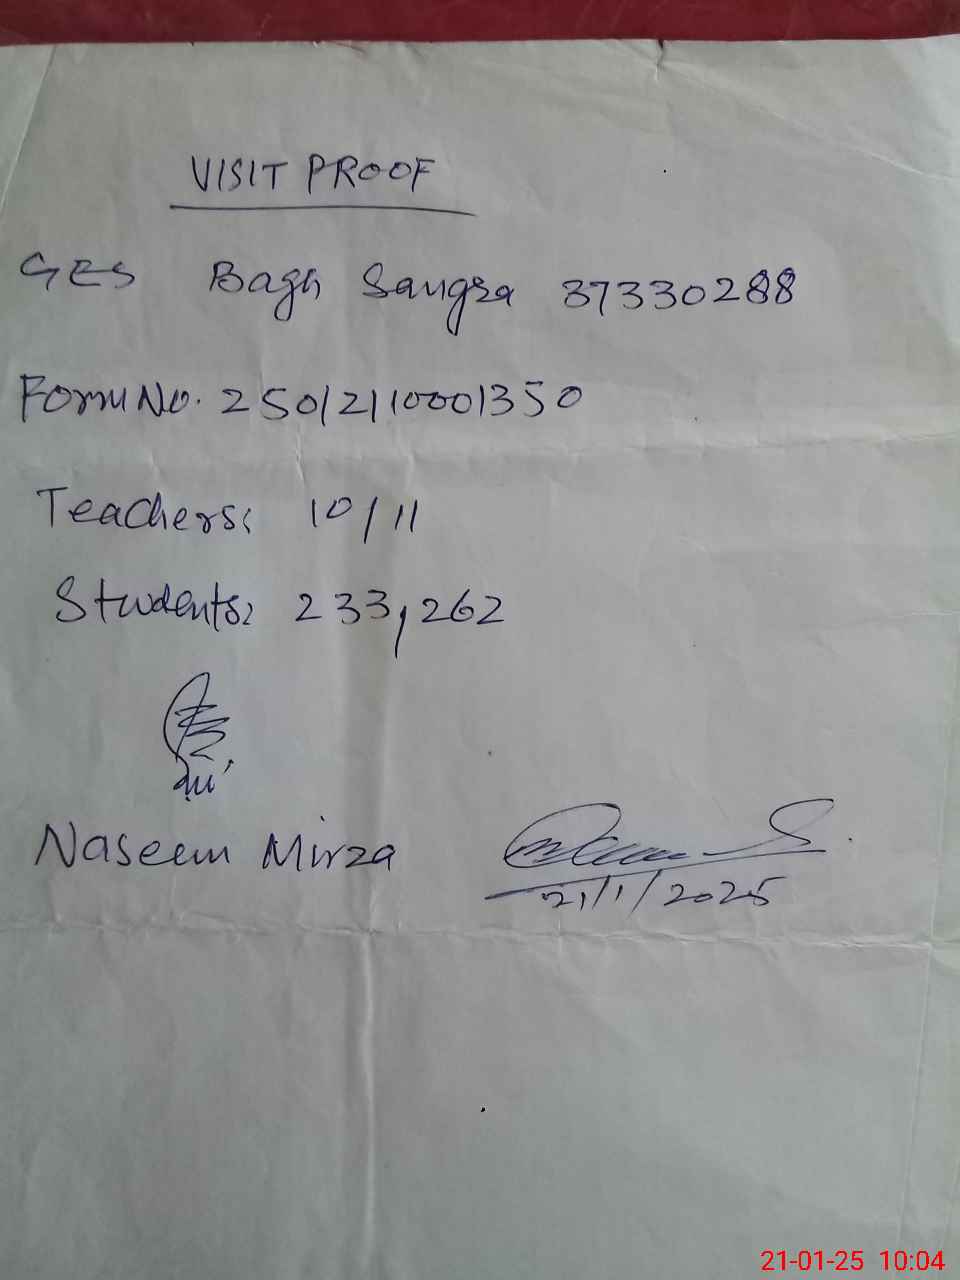 VISIT PROOF
GES Bagh Sangra 37330288
Form No. 25012110001350
Teachers: 10/11
Students: 233, 262
Naseem Mirza
21/1/2025
21-01-25 10:04